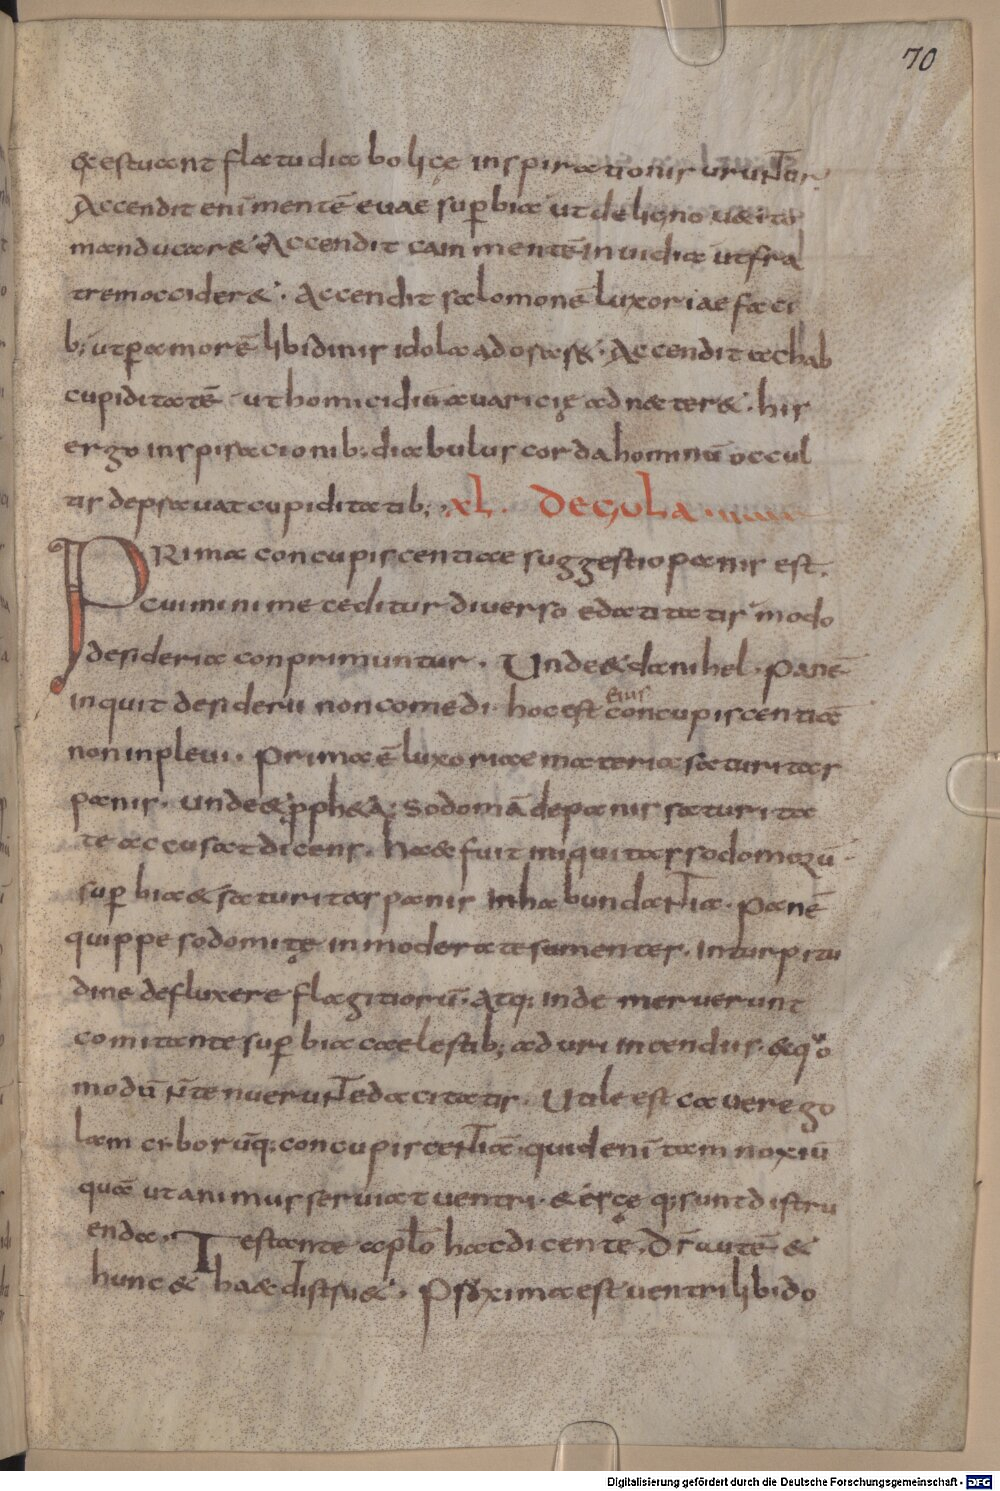 70
& estuant flatu diabolicę inspirationis uruntur.
Accendit enī mentē euae superbia ut de ligno uetito
manducar&. Accendit cain mentē inuidia ut fra
trem occider&. Accendit salomonē luxoriae faci
b; ut p amorē libidinis idola adorar&. Accendit achab
cupiditatē ut homicidiū auaricię adnecter&. his
ergo inspiracionib; diabulus corda hominū occul
tis deprauat cupiditatib; xl. De gula
PRima concupiscentiae suggestio panis est.
cui minime ceditur diuerso edatitatis modo
desideria conprimuntur. Unde & danihel. Panē
inquit desiderii non comedi. hoc est eius concupiscentiā
non inpleui. Prima ē luxoriae materia saturitas
panis. unde & ꝓph&a. Sodomā de panis saturita
te accusat dicens. Haec fuit iniquitas sodomorū
sup̄bia & saturitas panis in habundantia. Panē
quippe sodomitę inmoderate sumentes. in turpitu
dine defluxere flagitiorū. Atq; inde meruerunt
comitante sup̄bia caelestib; aduri incendiis. & qo
modū ñ tenuerunt edacitatis. Utile est cauere go
lam ciborūq; concupiscentiā. quid enī tam noxiū
quā ut animus seruiat uentri. & escę q; sunt distru
enda. Testante aplo hac dicente. Ds autē &
hunc & haec distru&. Proxima est uentri libido
Digitalisierung gefördert durch die Deutsche Forschungsgemeinschaft - DFG